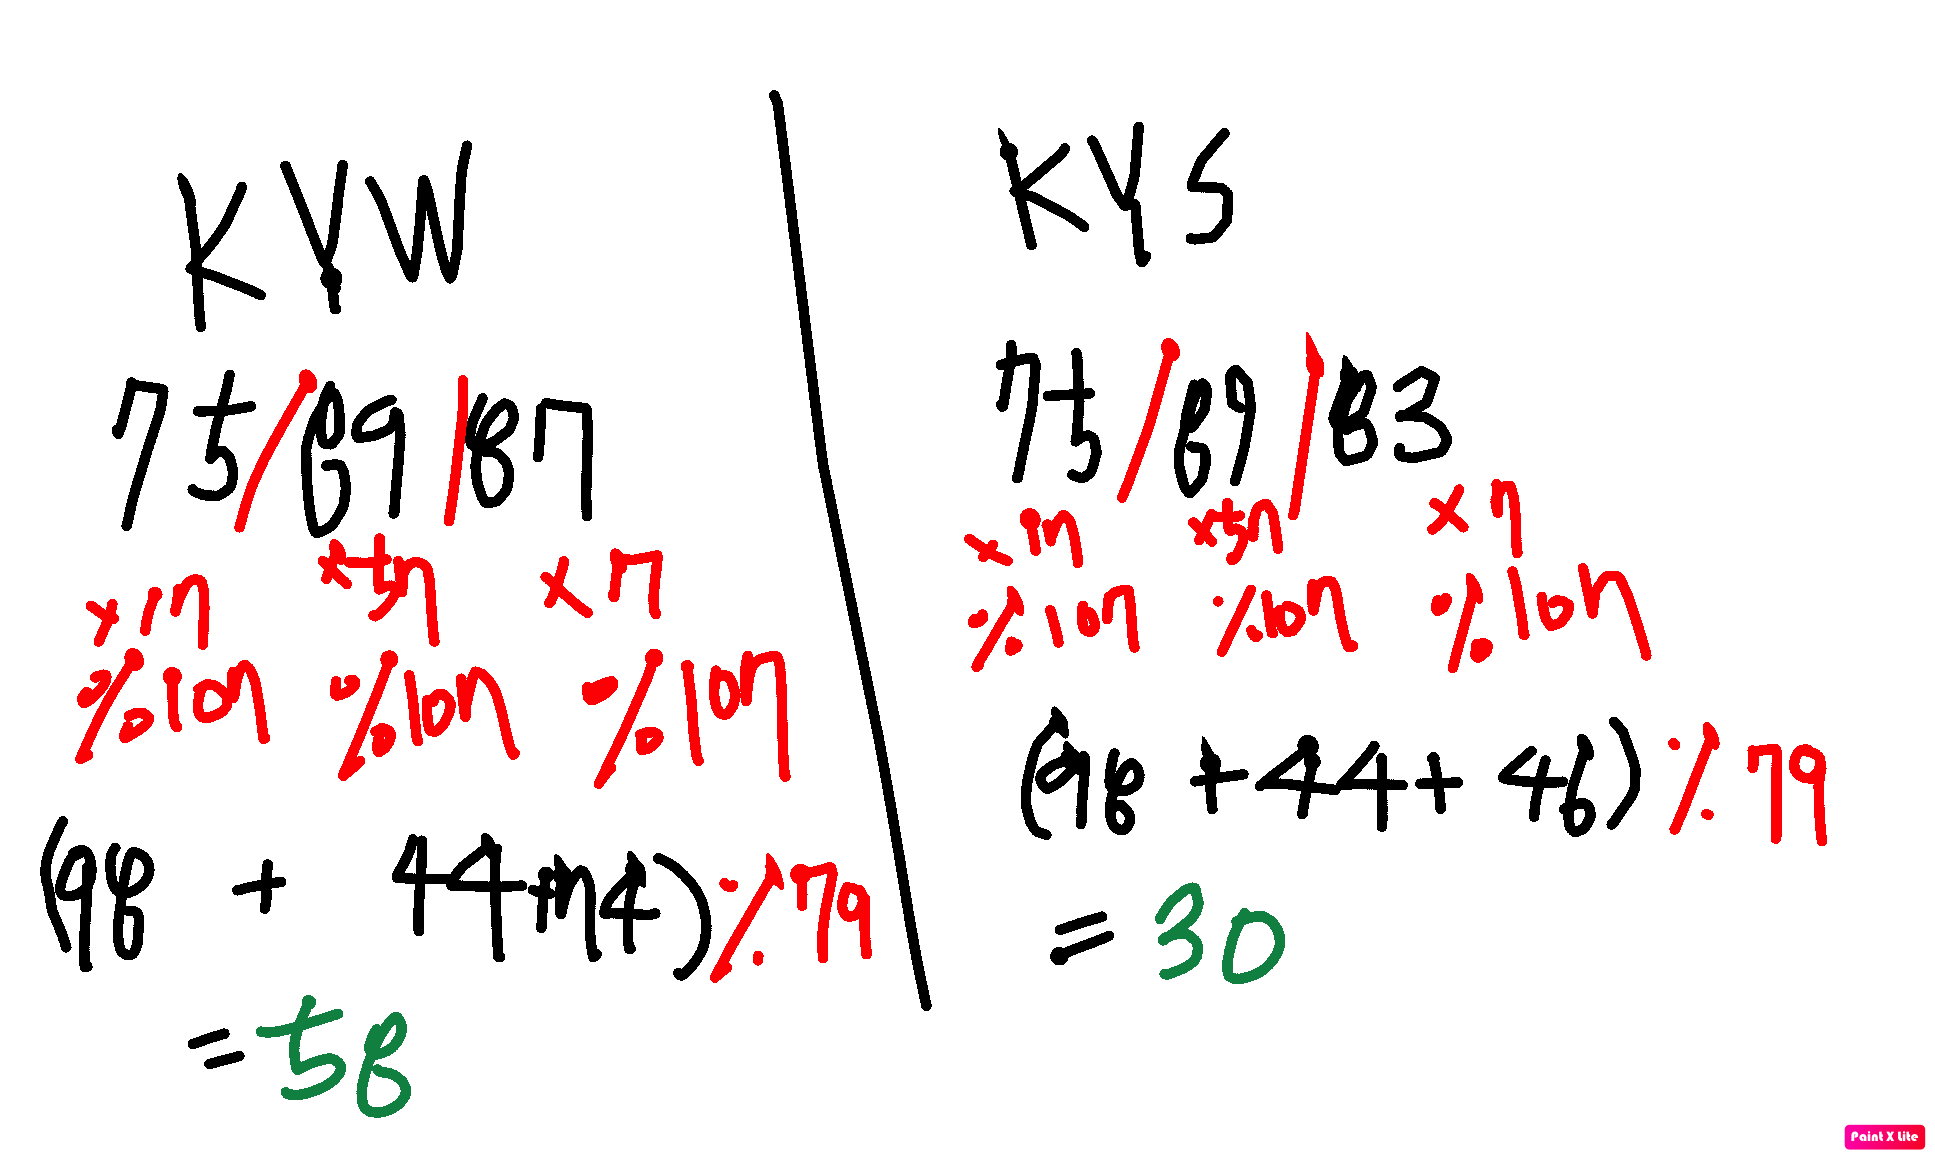 KYW
75/89/87
×17 ×57 ×7
%107 %107 %107
(98 + 44+74)%79
=58
KYS
75/89/83
×17 ×57 ×7
%107 %107 %107
(98 +44+ 46)%79
=30
Paint X Lite